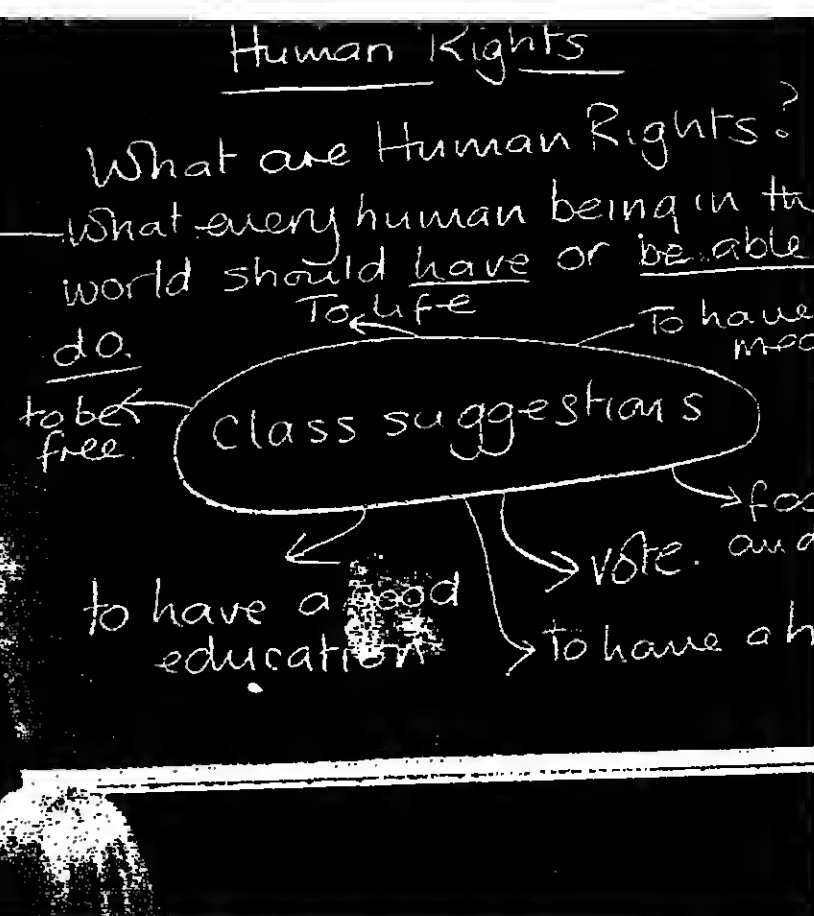 Human Rights
What are Human Rights?
What every human being in
world should have or be able
do.
To life
To have
to be
free.
Class suggestions
vote.
to have a good
education
To have a